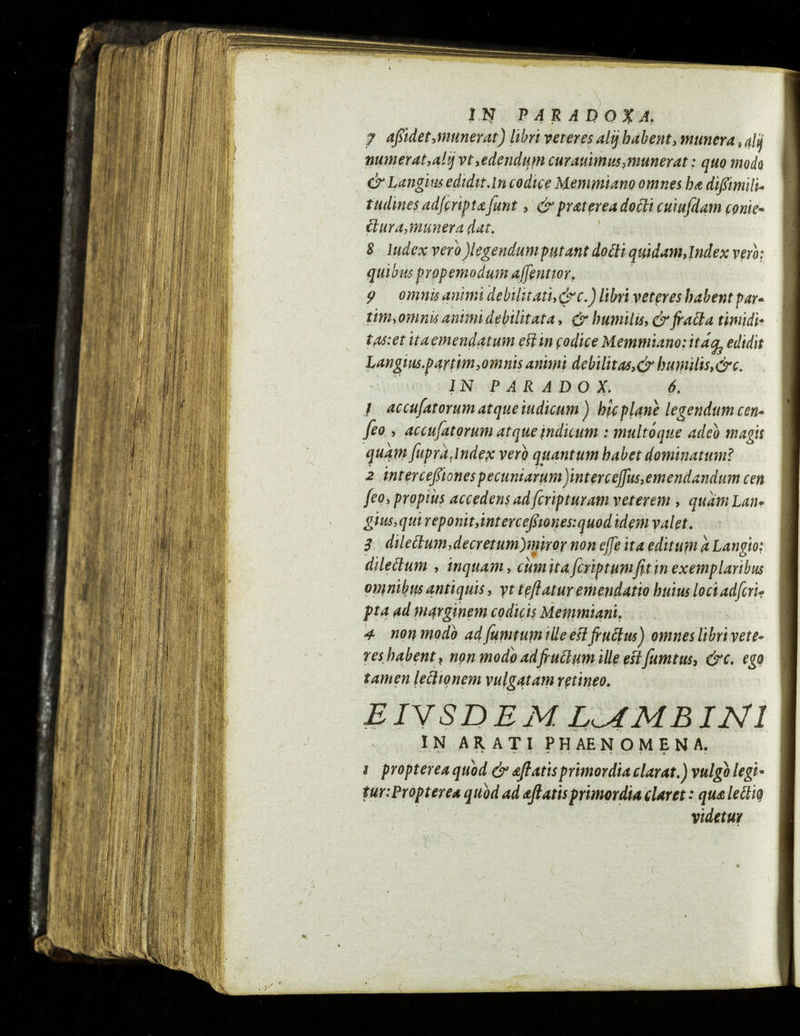 IN PARADOXA.
7 aßidet,munerat) libri veteres alij habent, munera, alij
numerat,alij vt,edendum curauimus,munerat: quo modo
& Langius edidit.In codice Memmiano omnes hæ dißimili-
tudines adscriptæ sunt, & præterea docti cuiusdam conie-
ctura,munera dat.
8 Iudex vero)legendum putant docti quidam,Index verò:
quibus propemodum assentior.
9 omnis animi debilitati,&c.) libri veteres habent par-
tim,omnis animi debilitata, & humilis, & fracta timidi-
tas:et ita emendatum est in codice Memmiano: itáq; edidit
Langius.partim,omnis animi debilitas,& humilis,&c.
IN PARADOX. 6.
1 accusatorum atque iudicum ) hîc planè legendum cen-
seo , accusatorum atque indicum : multóque adeò magis
quàm suprà,Index verò quantum habet dominatum?
2 interceßiones pecuniarum)intercessus,emendandum cen
seo, propiùs accedens ad scripturam veterem , quàm Lan-
gius,qui reponit,interceßiones:quod idem valet.
3 dilectum,decretum)miror non esse ita editum à Langio:
dilectum , inquam, cùm ita scriptum sit in exemplaribus
omnibus antiquis, vt testatur emendatio huius loci adscri-
pta ad marginem codicis Memmiani.
4 non modò ad sumtum ille est fructus) omnes libri vete-
res habent, non modò ad fructum ille est sumtus, &c. ego
tamen lectionem vulgatam retineo.
EIVSDEM LAMBINI
IN ARATI PHAENOMENA.
1 propterea quòd & æstatis primordia clarat.) vulgò legi-
tur:Propterea quòd ad æstatis primordia claret: quæ lectio
videtur